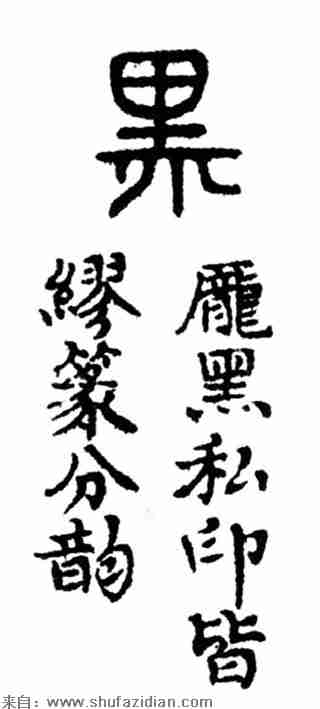 黑
龐黑私印皆
繆篆分韵
来自：www.shufazidian.com